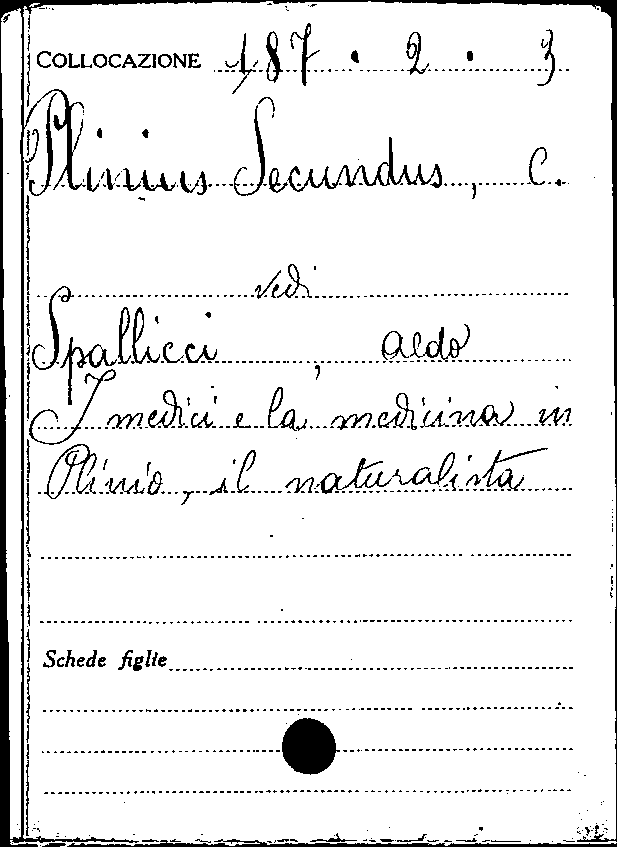 COLLOCAZIONE 187 . 2 . 3
Plinius Secundus, C.
vedi
Spallicci, Aldo
I medici e la medicina in
Plinio, il naturalista
Schede figlie